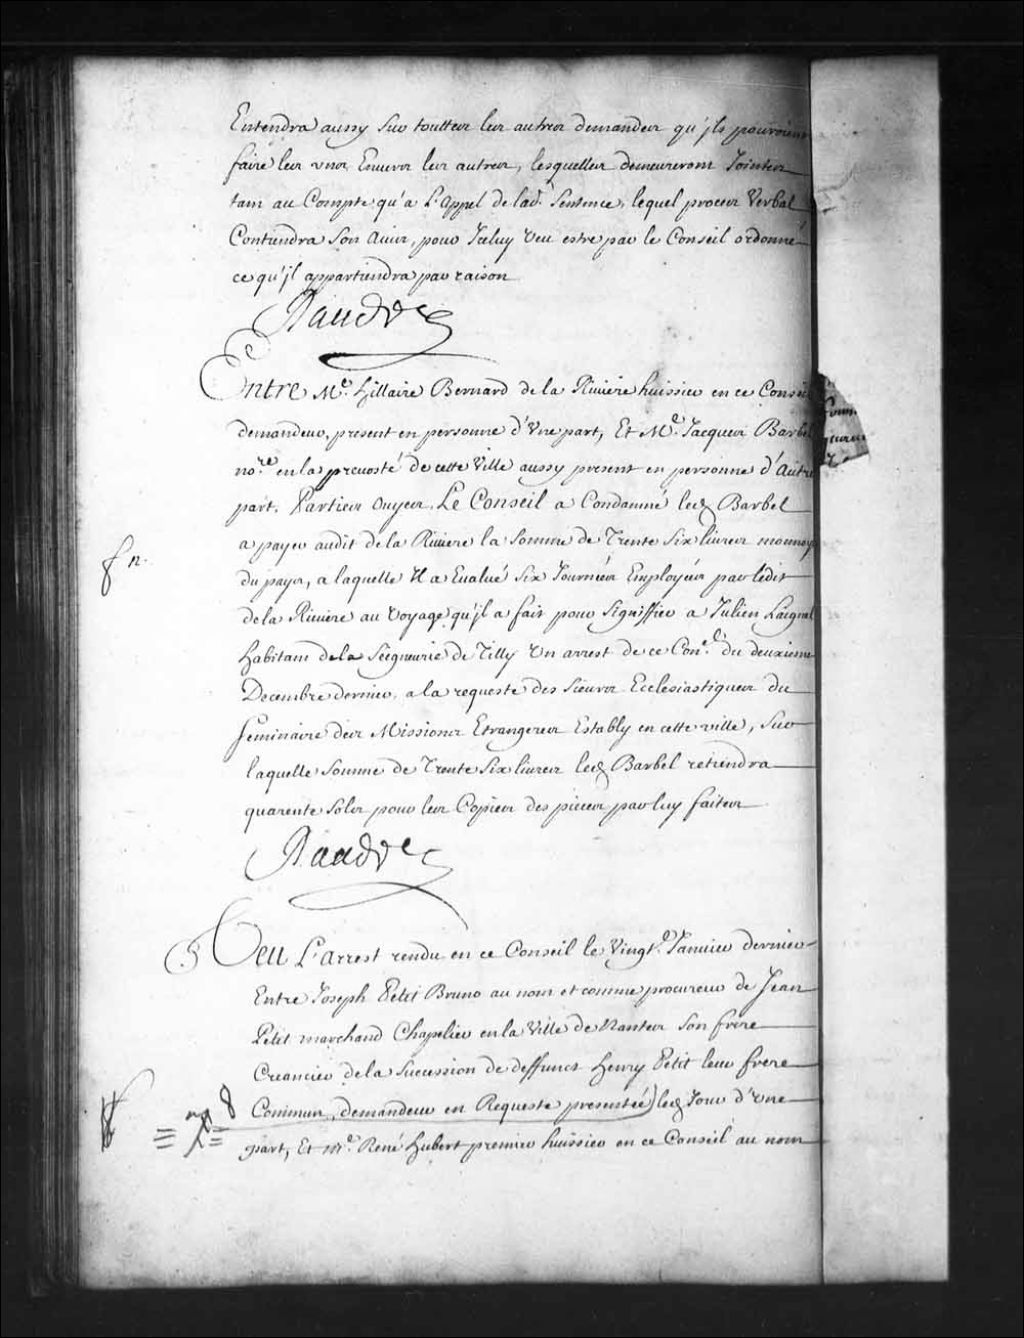 Entendra aussy sur touttes les autres demandes qu'ils pouroient
faire les uns Envers les autres, lesquelles demeureront Jointes
tant au Compte qu'a L'appel de lad.^e Sentence, lequel proces Verbal
Contiendra Son Avis, pour Iceluy Veu estre par le Conseil ordonné
ce qu'il appartiendra par raison
Raudot
Entre M.^e Hillaire Bernard de la Riviere huissier en ce Conseil
demandeur, present en personne d'Une part, Et M.^e Jacques Barbel
no.^re en la prevosté de cette Ville aussy present en personne d'Autre
part. Parties Ouyes, Le Conseil a Condamné led. Barbel
a payer audit de la Riviere la Somme de Trente Six livres monnoye
du pays, a laquelle Il a Evalué Six Journées Employées par ledit
fn.
de la Riviere au Voyage qu'il a fait pour Signiffier a Julien Laignel
habitant de la Seigneurie de Tilly Un arrest de ce Con.^l du deuxieme
Decembre dernier, a la requeste des Sieurs Ecclesiastiques du
Seminaire des Missions Etrangeres Estably en cette ville, Sur
laquelle Somme de Trente Six livres led. Barbel retiendra
quarente Sols pour les Copies des pieces par luy faites
Raudot
Veu L'arrest rendu en ce Conseil le Vingt.^e Janvier dernier
Entre Joseph Petit Bruno au nom et comme procureur de Jean
Petit marchand Chapelier en la Ville de Nantes Son frere
Creancier de la Succession de deffunct Henry Petit leur frere
Commun, demandeur en Requeste presentée led. Jour d'Une
part, Et M.^e René Hubert premier huissier en ce Conseil au nom